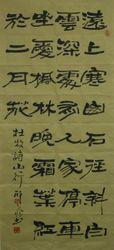 遠上寒山石徑斜白
雲深處有人家停車
坐愛楓林晚霜葉紅
於二月花
杜牧詩山行